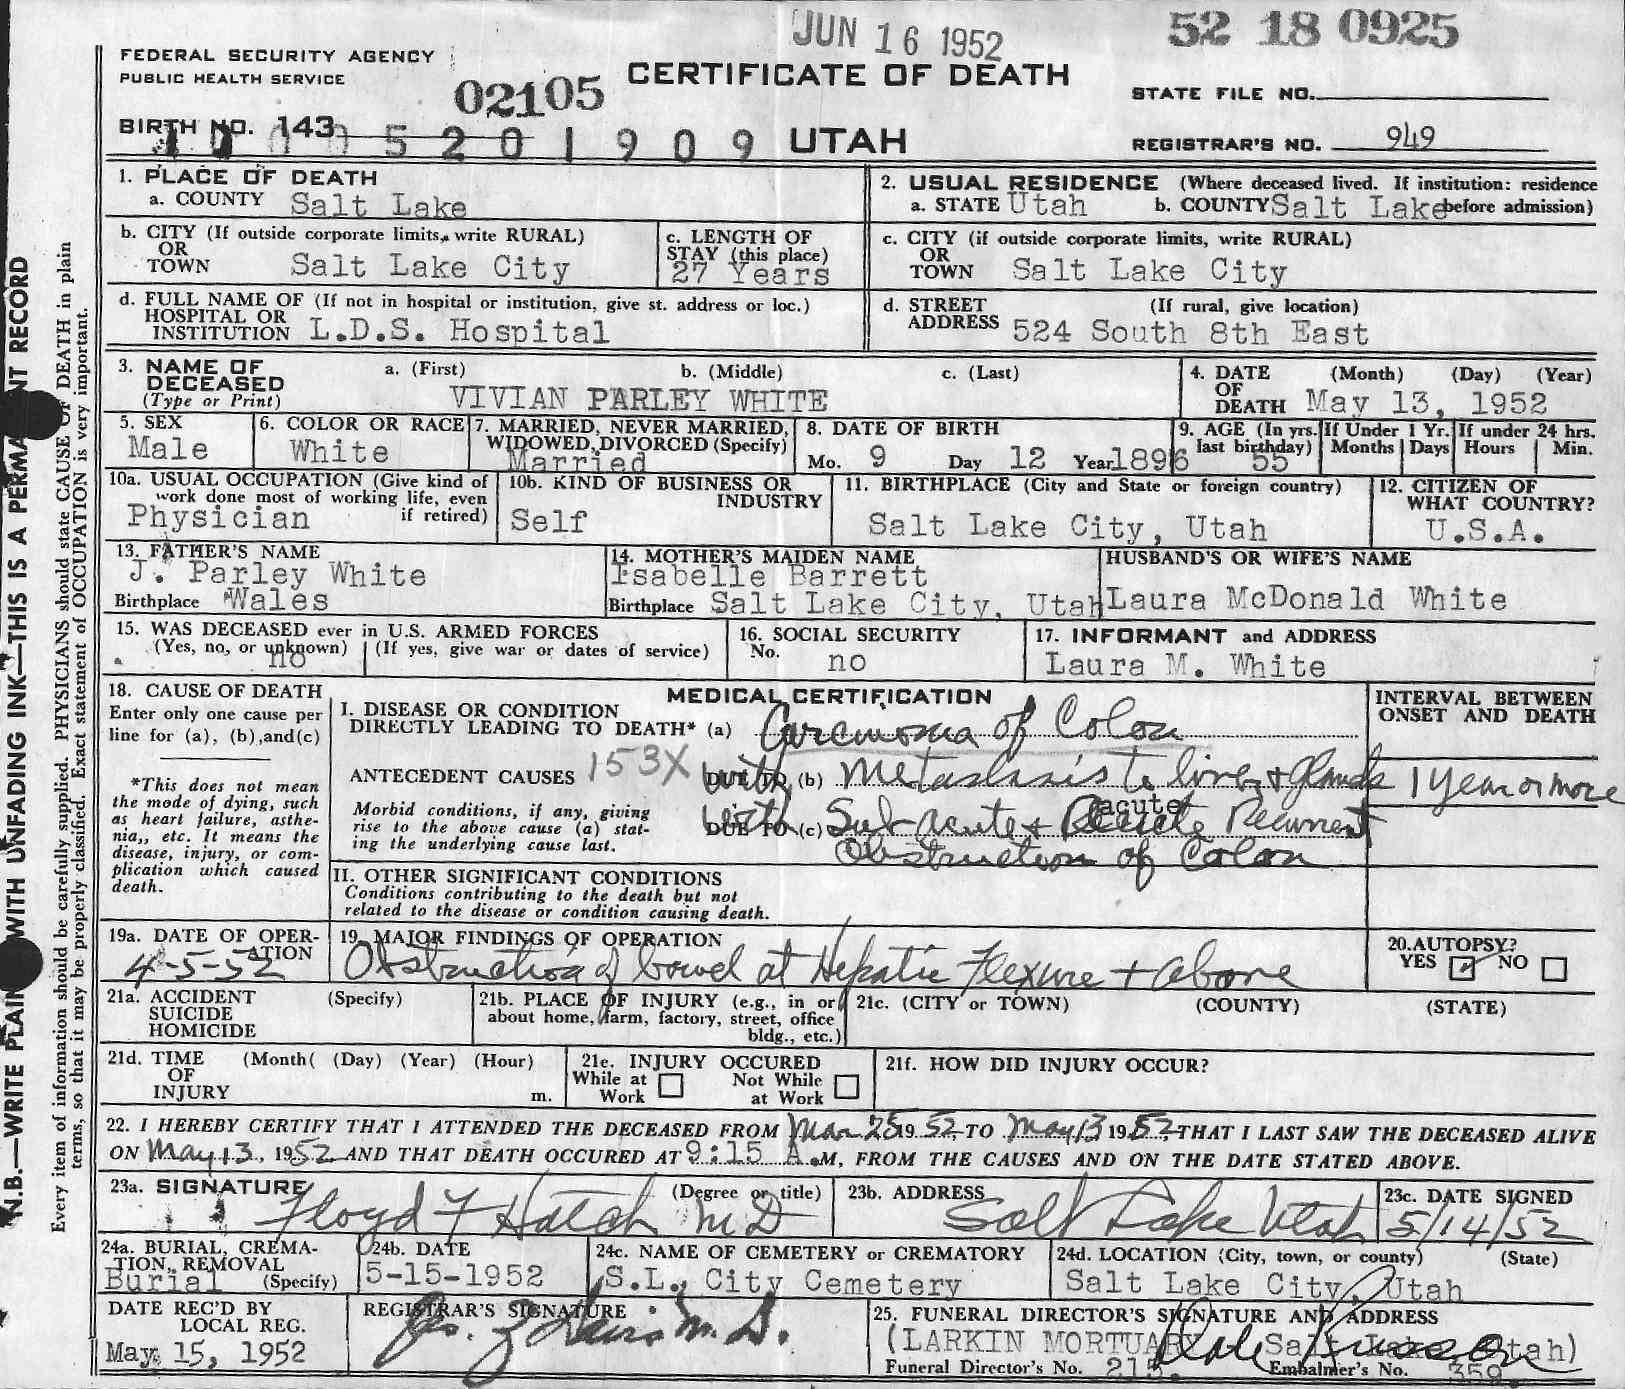 JUN 16 1952
52 18 0925
FEDERAL SECURITY AGENCY
PUBLIC HEALTH SERVICE
02105
CERTIFICATE OF DEATH
STATE FILE NO.
BIRTH NO. 143
5201909
UTAH
REGISTRAR'S NO. 949
1. PLACE OF DEATH
a. COUNTY Salt Lake
2. USUAL RESIDENCE (Where deceased lived. If institution: residence
a. STATE Utah b. COUNTY Salt Lake before admission)
b. CITY (If outside corporate limits, write RURAL)
OR
TOWN Salt Lake City
c. LENGTH OF
STAY (this place)
27 Years
c. CITY (if outside corporate limits, write RURAL)
OR
TOWN Salt Lake City
d. FULL NAME OF (If not in hospital or institution, give st. address or loc.)
HOSPITAL OR
INSTITUTION L.D.S. Hospital
d. STREET (If rural, give location)
ADDRESS 524 South 8th East
3. NAME OF a. (First) b. (Middle) c. (Last)
DECEASED
(Type or Print) VIVIAN PARLEY WHITE
4. DATE (Month) (Day) (Year)
OF
DEATH May 13, 1952
5. SEX
Male
6. COLOR OR RACE
White
7. MARRIED, NEVER MARRIED,
WIDOWED, DIVORCED (Specify)
Married
8. DATE OF BIRTH
Mo. 9 Day 12 Year 1896
9. AGE (In yrs.
last birthday)
55
If Under 1 Yr.
Months Days
If under 24 hrs.
Hours Min.
10a. USUAL OCCUPATION (Give kind of
work done most of working life, even
if retired)
Physician
10b. KIND OF BUSINESS OR
INDUSTRY
Self
11. BIRTHPLACE (City and State or foreign country)
Salt Lake City, Utah
12. CITIZEN OF
WHAT COUNTRY?
U.S.A.
13. FATHER'S NAME
J. Parley White
Birthplace Wales
14. MOTHER'S MAIDEN NAME
Isabelle Barrett
Birthplace Salt Lake City, Utah
HUSBAND'S OR WIFE'S NAME
Laura McDonald White
15. WAS DECEASED ever in U.S. ARMED FORCES
(Yes, no, or unknown) (If yes, give war or dates of service)
no
16. SOCIAL SECURITY
No.
no
17. INFORMANT and ADDRESS
Laura M. White
18. CAUSE OF DEATH
Enter only one cause per
line for (a), (b), and(c)
*This does not mean
the mode of dying, such
as heart failure, asthe-
nia,, etc. It means the
disease, injury, or com-
plication which caused
death.
MEDICAL CERTIFICATION
I. DISEASE OR CONDITION
DIRECTLY LEADING TO DEATH* (a) Carcinoma of Colon
ANTECEDENT CAUSES 153X with DUE TO (b) Metastasis to liver + glands
Morbid conditions, if any, giving
rise to the above cause (a) stat-
ing the underlying cause last.
with DUE TO (c) Sub acute + acute Recurrent
Obstruction of Colon
INTERVAL BETWEEN
ONSET AND DEATH
1 year or more
II. OTHER SIGNIFICANT CONDITIONS
Conditions contributing to the death but not
related to the disease or condition causing death.
19a. DATE OF OPER-
ATION
4-5-52
19. MAJOR FINDINGS OF OPERATION
Obstruction of bowel at Hepatic Flexure + above
20. AUTOPSY?
YES ✓ NO
21a. ACCIDENT (Specify)
SUICIDE
HOMICIDE
21b. PLACE OF INJURY (e.g., in or
about home, farm, factory, street, office
bldg., etc.)
21c. (CITY or TOWN) (COUNTY) (STATE)
21d. TIME (Month( (Day) (Year) (Hour)
OF
INJURY m.
21e. INJURY OCCURED
While at Not While
Work at Work
21f. HOW DID INJURY OCCUR?
22. I HEREBY CERTIFY THAT I ATTENDED THE DECEASED FROM Mar 25 1952, TO May 13 1952, THAT I LAST SAW THE DECEASED ALIVE
ON May 13, 1952 AND THAT DEATH OCCURED AT 9:15 A.M, FROM THE CAUSES AND ON THE DATE STATED ABOVE.
23a. SIGNATURE (Degree or title)
Floyd F Hatch MD
23b. ADDRESS
Salt Lake Utah
23c. DATE SIGNED
5/14/52
24a. BURIAL, CREMA-
TION, REMOVAL
Burial (Specify)
24b. DATE
5-15-1952
24c. NAME OF CEMETERY or CREMATORY
S.L. City Cemetery
24d. LOCATION (City, town, or county) (State)
Salt Lake City, Utah
DATE REC'D BY
LOCAL REG.
May 15, 1952
REGISTRAR'S SIGNATURE
M. D.
25. FUNERAL DIRECTOR'S SIGNATURE AND ADDRESS
(LARKIN MORTUARY Salt Lake Utah)
Funeral Director's No. 215. Embalmer's No. 359.
N.B.—WRITE PLAIN WITH UNFADING INK—THIS IS A PERMANENT RECORD
Every item of information should be carefully supplied. PHYSICIANS should state CAUSE OF DEATH in plain
terms, so that it may be properly classified. Exact statement of OCCUPATION is very important.